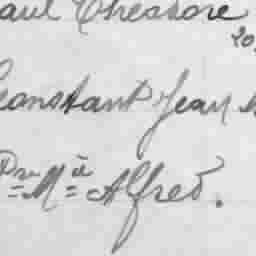 aul Theodore
20
Constant Jean
Pre Mie Alfred.